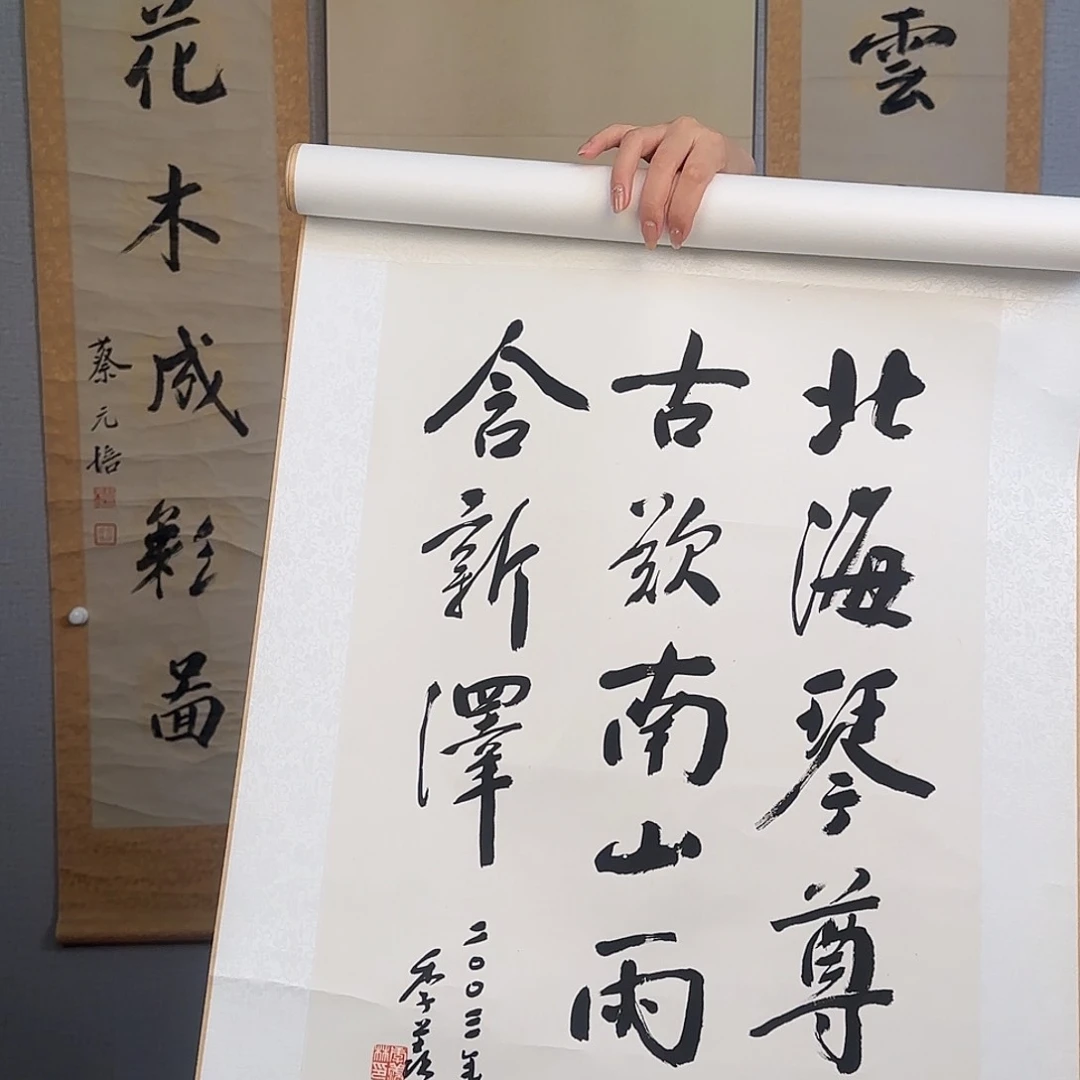 雲
北海琴尊
古歡南山雨
含新澤
二〇〇三年
季羡林
花木成彩啚
蔡元培